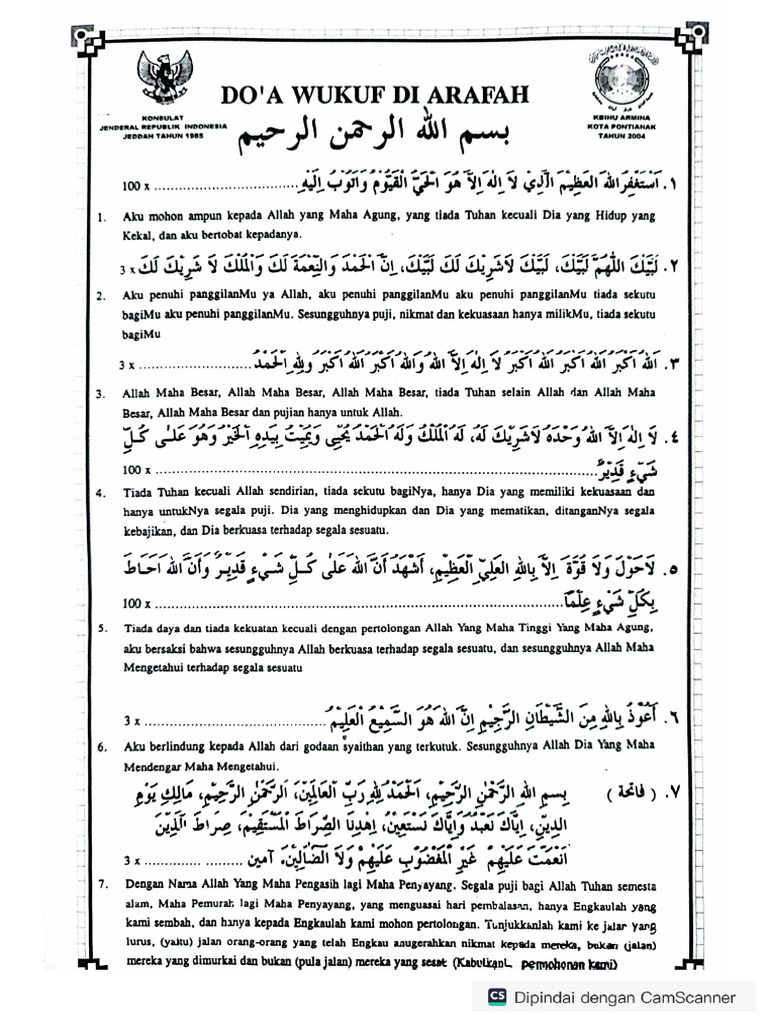 DO'A WUKUF DI ARAFAH
KONSULAT
JENDERAL REPUBLIK INDONESIA
JEDDAH TAHUN 1985
KBIHU ARMINA
KOTA PONTIANAK
TAHUN 2004
بسم الله الرحمن الرحيم
١. اَسْتَغْفِرُ اللهَ الْعَظِيْمَ الَّذِيْ لَا اِلٰهَ اِلَّا هُوَ الْحَيُّ الْقَيُّوْمُ وَاَتُوْبُ اِلَيْهِ................................. 100 x
1. Aku mohon ampun kepada Allah yang Maha Agung, yang tiada Tuhan kecuali Dia yang Hidup yang
Kekal, dan aku bertobat kepadanya.
٢. لَبَّيْكَ اللّٰهُمَّ لَبَّيْكَ، لَبَّيْكَ لَاشَرِيْكَ لَكَ لَبَّيْكَ، اِنَّ الْحَمْدَ وَالنِّعْمَةَ لَكَ وَالْمُلْكَ لَا شَرِيْكَ لَكَ 3 x
2. Aku penuhi panggilanMu ya Allah, aku penuhi panggilanMu aku penuhi panggilanMu tiada sekutu
bagiMu aku penuhi panggilanMu. Sesungguhnya puji, nikmat dan kekuasaan hanya milikMu, tiada sekutu
bagiMu
٣. اَللهُ اَكْبَرُ اللهُ اَكْبَرُ اللهُ اَكْبَرُ لَا اِلٰهَ اِلَّا اللهُ وَاللهُ اَكْبَرُ اللهُ اَكْبَرُ وَلِلّٰهِ الْحَمْدُ.......................... 3 x
3. Allah Maha Besar, Allah Maha Besar, Allah Maha Besar, tiada Tuhan selain Allah dan Allah Maha
Besar, Allah Maha Besar dan pujian hanya untuk Allah.
٤. لَا اِلٰهَ اِلَّا اللهُ وَحْدَهُ لَاشَرِيْكَ لَهُ، لَهُ الْمُلْكُ وَلَهُ الْحَمْدُ يُحْيِيْ وَيُمِيْتُ بِيَدِهِ الْخَيْرُ وَهُوَ عَلٰى كُلِّ
شَيْءٍ قَدِيْرٌ.................................................................................................... 100 x
4. Tiada Tuhan kecuali Allah sendirian, tiada sekutu bagiNya, hanya Dia yang memiliki kekuasaan dan
hanya untukNya segala puji. Dia yang menghidupkan dan Dia yang mematikan, ditanganNya segala
kebajikan, dan Dia berkuasa terhadap segala sesuatu.
٥. لَاحَوْلَ وَلَا قُوَّةَ اِلَّا بِاللهِ الْعَلِيِّ الْعَظِيْمِ، اَشْهَدُ اَنَّ اللهَ عَلٰى كُلِّ شَيْءٍ قَدِيْرٌ وَاَنَّ اللهَ اَحَاطَ
بِكُلِّ شَيْءٍ عِلْمًا............................................................................................ 100 x
5. Tiada daya dan tiada kekuatan kecuali dengan pertolongan Allah Yang Maha Tinggi Yang Maha Agung,
aku bersaksi bahwa sesungguhnya Allah berkuasa terhadap segala sesuatu, dan sesungguhnya Allah Maha
Mengetahui terhadap segala sesuatu
٦. اَعُوْذُ بِاللهِ مِنَ الشَّيْطَانِ الرَّجِيْمِ اِنَّ اللهَ هُوَ السَّمِيْعُ الْعَلِيْمُ........................................ 3 x
6. Aku berlindung kepada Allah dari godaan syaithan yang terkutuk. Sesungguhnya Allah Dia Yang Maha
Mendengar Maha Mengetahui.
٧. ( فاتحة ) بِسْمِ اللهِ الرَّحْمٰنِ الرَّحِيْمِ، اَلْحَمْدُ لِلّٰهِ رَبِّ الْعَالَمِيْنَ، اَلرَّحْمٰنِ الرَّحِيْمِ، مَالِكِ يَوْمِ
الدِّيْنِ، اِيَّاكَ نَعْبُدُ وَاِيَّاكَ نَسْتَعِيْنُ، اِهْدِنَا الصِّرَاطَ الْمُسْتَقِيْمَ، صِرَاطَ الَّذِيْنَ
اَنْعَمْتَ عَلَيْهِمْ غَيْرِ الْمَغْضُوْبِ عَلَيْهِمْ وَلَا الضَّالِّيْنَ. آمين ......... .............. 3 x
7. Dengan Nama Allah Yang Maha Pengasih lagi Maha Penyayang. Segala puji bagi Allah Tuhan semesta
alam, Maha Pemurah lagi Maha Penyayang, yang menguasai hari pembalasan, hanya Engkaulah yang
kami sembah, dan hanya kepada Engkaulah kami mohon pertolongan. Tunjukkanlah kami ke jalar yang
lurus, (yaitu) jalan orang-orang yang telah Engkau anugerahkan nikmat kepada mereka, bukan (jalan)
mereka yang dimurkai dan bukan (pula jalan) mereka yang sesat (Kabulkanl permohonan kami)
CS Dipindai dengan CamScanner